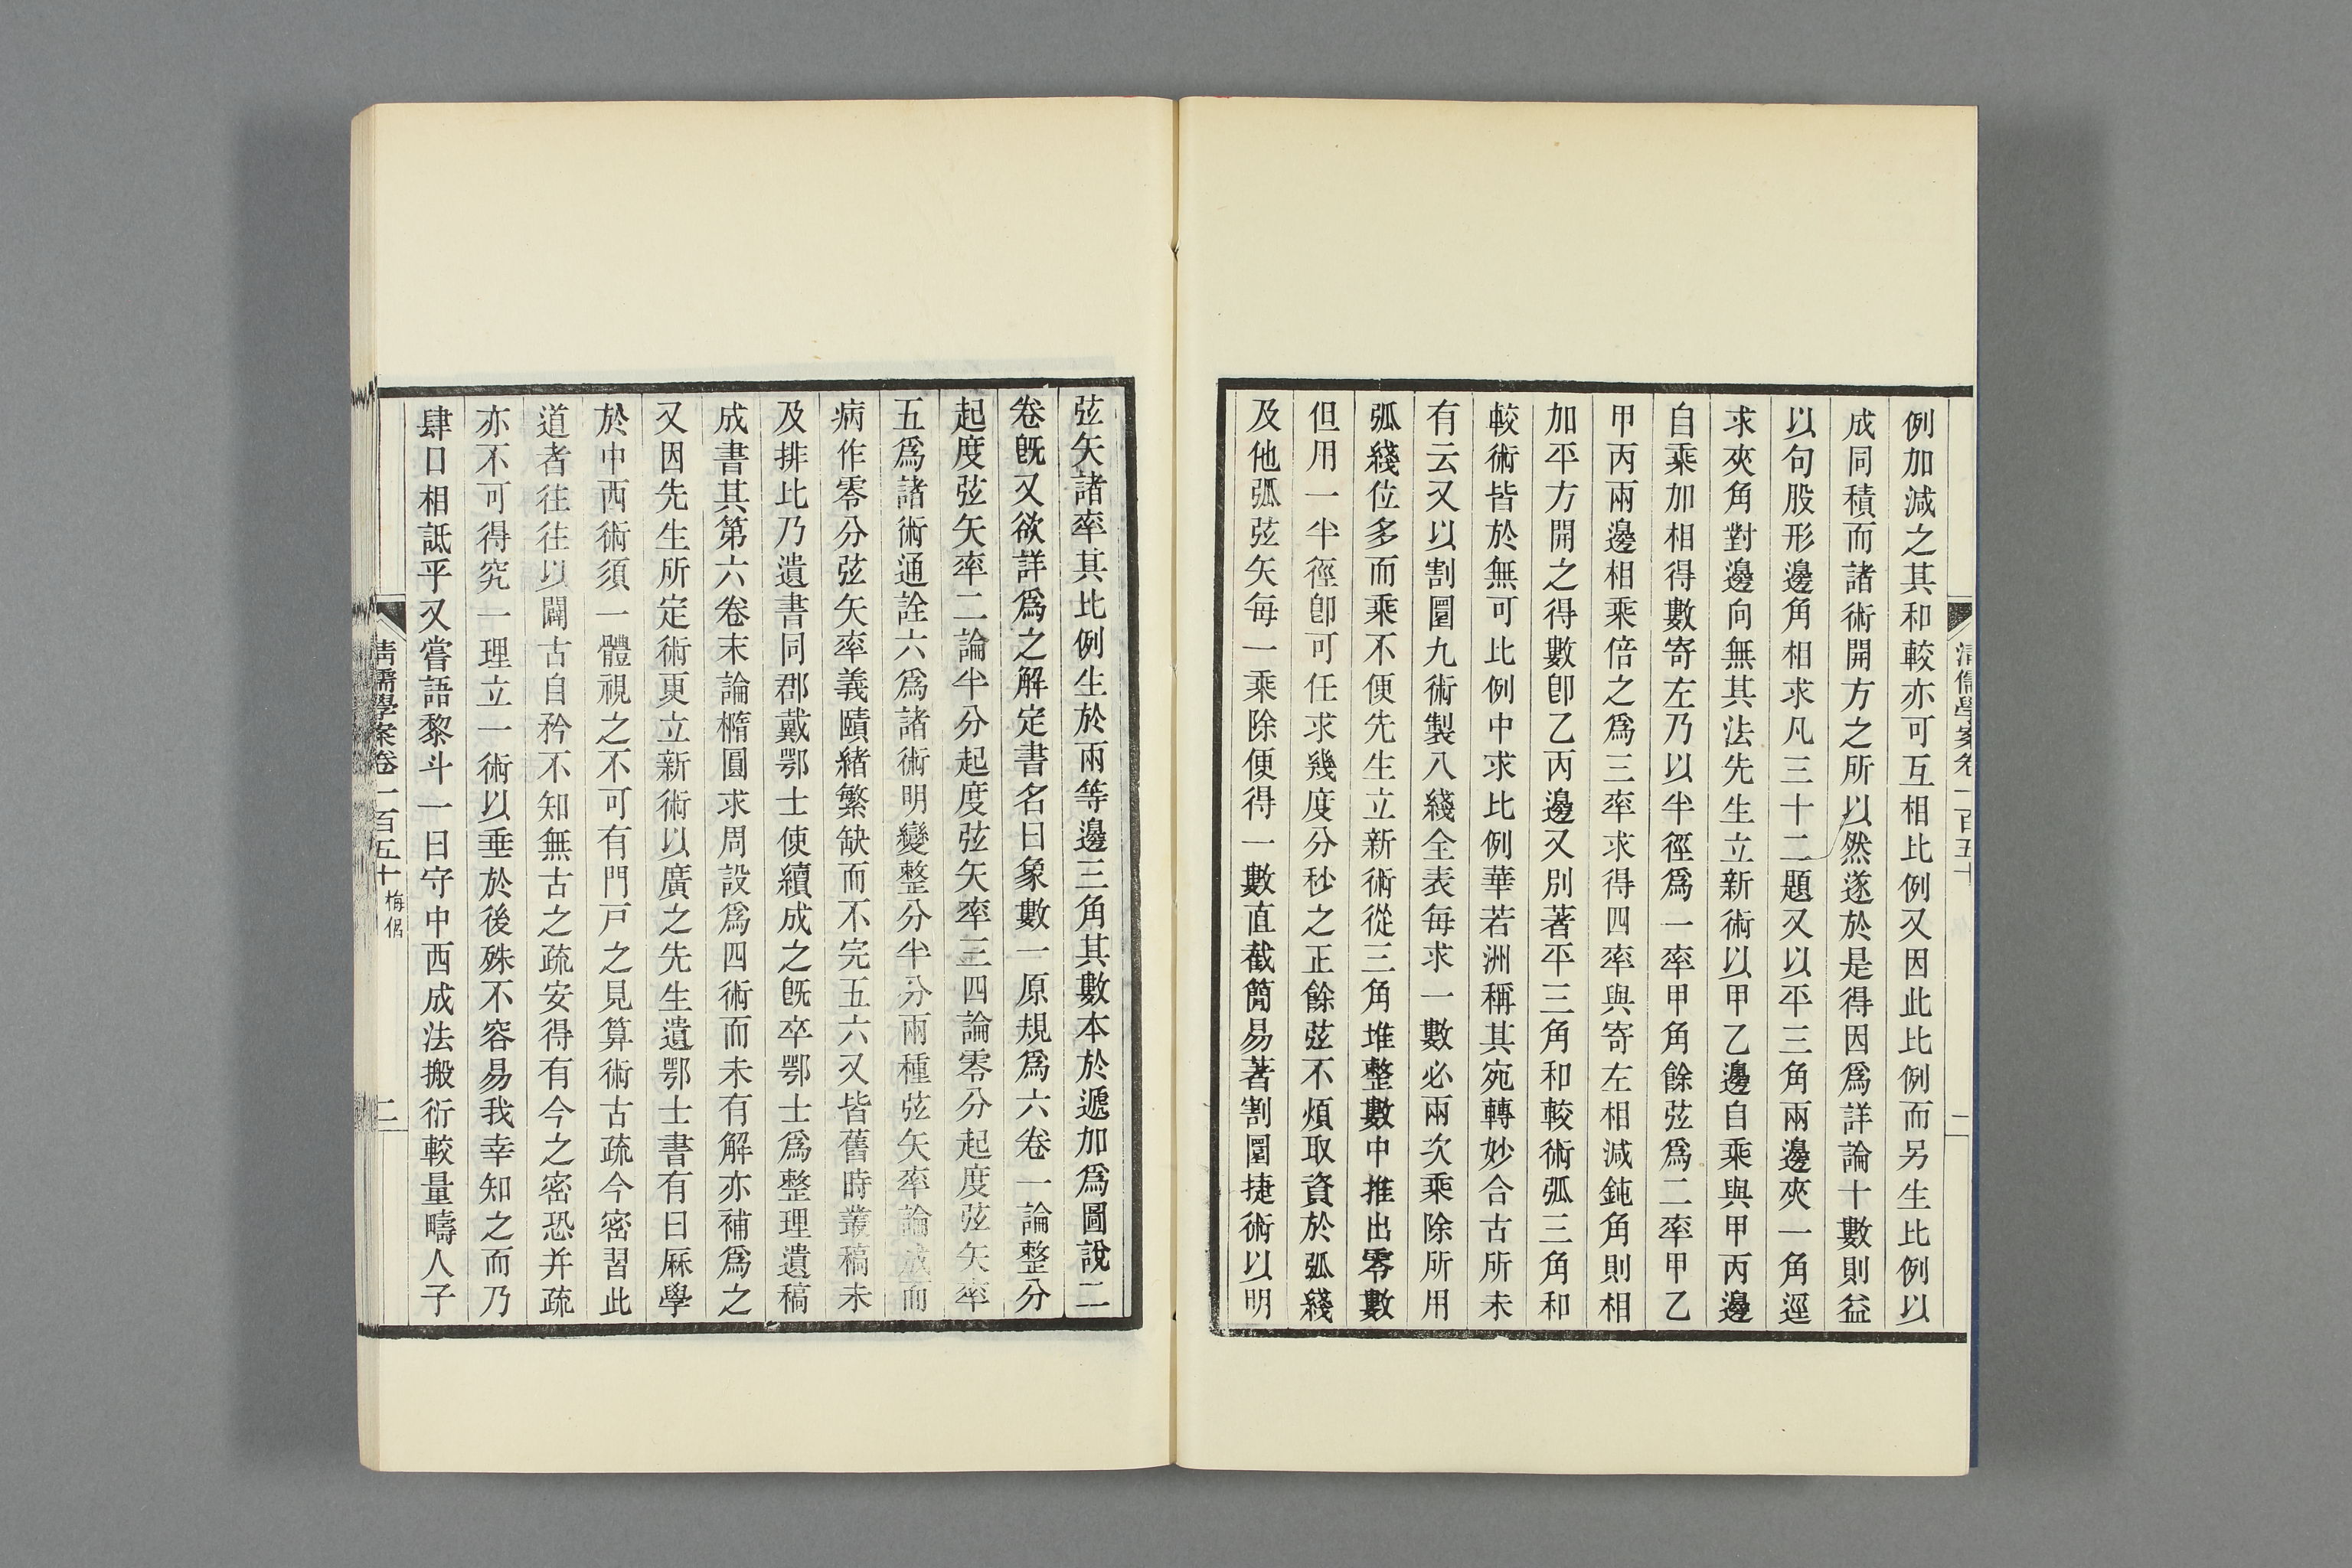 清儒學案卷一百五十
一
例加減之其和較亦可互相比例又因此比例而另生比例以
成同積而諸術開方之所以然遂於是得因爲詳論十數則益
以句股形邊角相求凡三十二題又以平三角兩邊夾一角逕
求夾角對邊向無其法先生立新術以甲乙邊自乘與甲丙邊
自乘加相得數寄左乃以半徑爲一率甲角餘弦爲二率甲乙
甲丙兩邊相乘倍之爲三率求得四率與寄左相減鈍角則相
加平方開之得數卽乙丙邊又別著平三角和較術弧三角和
較術皆於無可比例中求比例華若洲稱其宛轉妙合古所未
有云又以割圜九術製八綫全表每求一數必兩次乘除所用
弧綫位多而乘不便先生立新術從三角堆整數中推出零數
但用一半徑卽可任求幾度分秒之正餘弦不煩取資於弧綫
及他弧弦矢每一乘除便得一數直截簡易著割圜捷術以明
弦矢諸率其比例生於兩等邊三角其數本於遞加爲圖說二
卷旣又欲詳爲之解定書名曰象數一原規爲六卷一論整分
起度弦矢率二論半分起度弦矢率三四論零分起度弦矢率
五爲諸術通詮六爲諸術明變整分半分兩種弦矢率論成而
病作零分弦矢率義賾緒繁缺而不完五六又皆舊時叢稿未
及排比乃遺書同郡戴鄂士使續成之旣卒鄂士爲整理遺稿
成書其第六卷末論橢圓求周設爲四術而未有解亦補爲之
又因先生所定術更立新術以廣之先生遺鄂士書有曰厤學
於中西術須一體視之不可有門戸之見算術古疏今密習此
道者往往以闢古自矜不知無古之疏安得有今之密恐幷疏
亦不可得究一理立一術以垂於後殊不容易我幸知之而乃
肆口相詆乎又嘗語黎斗一曰守中西成法搬衍較量疇人子
清儒學案卷一百五十 梅侶
二